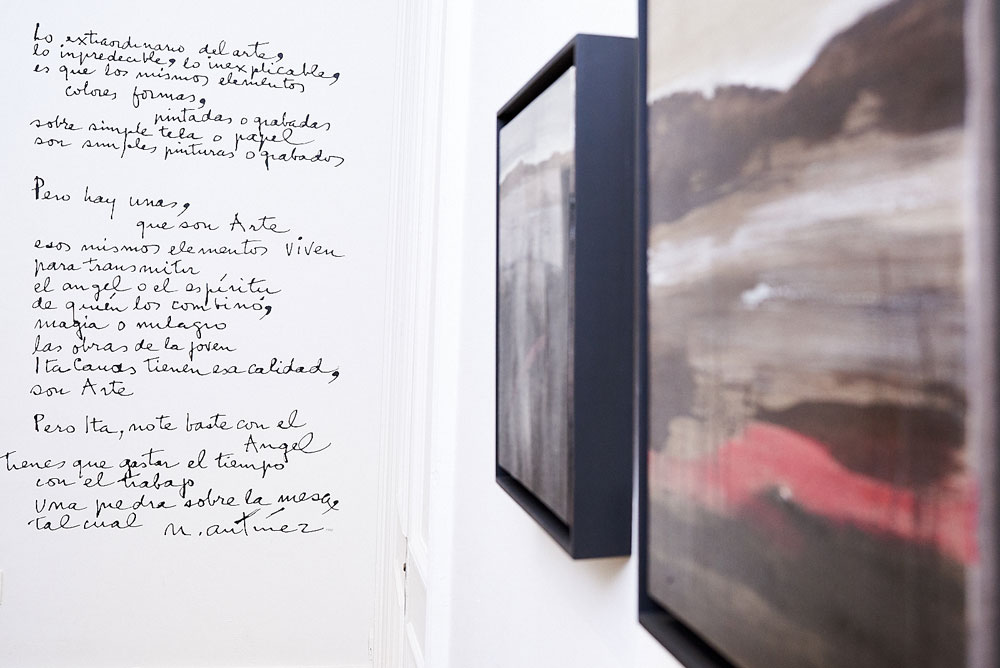 Lo extraordinario del arte,
lo impredecible, lo inexplicable,
es que los mismos elementos
colores formas,
pintadas o grabadas
sobre simple tela o papel
son simples pinturas o grabados
Pero hay unas,
que son Arte
esos mismos elementos viven
para transmitir
el angel o el espíritu
de quién los combinó,
magia o milagro
las obras de la joven
Ita tienen esa calidad,
son Arte
Pero Ita, no te baste con el
Angel
tienes que gastar el tiempo
con el trabajo
una piedra sobre la mesa,
tal cual n. antúnez